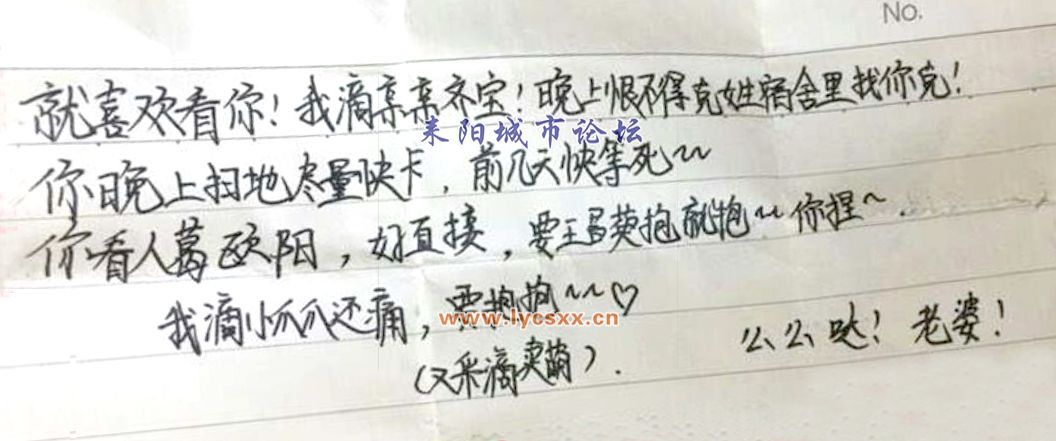 No.
就喜欢看你！我滴亲亲齐宝！晚上恨不得克姓宿舍里找你克！
耒阳城市论坛
你晚上扫地尽量快卡，前几天快等死~~
你看人葛欧阳，好直接，要王昌英抱就抱~~你捏~.
我滴小爪爪还痛，要抱抱~~♡
www.lycsxx.cn
么么哒！老婆！
(又采滴卖萌).